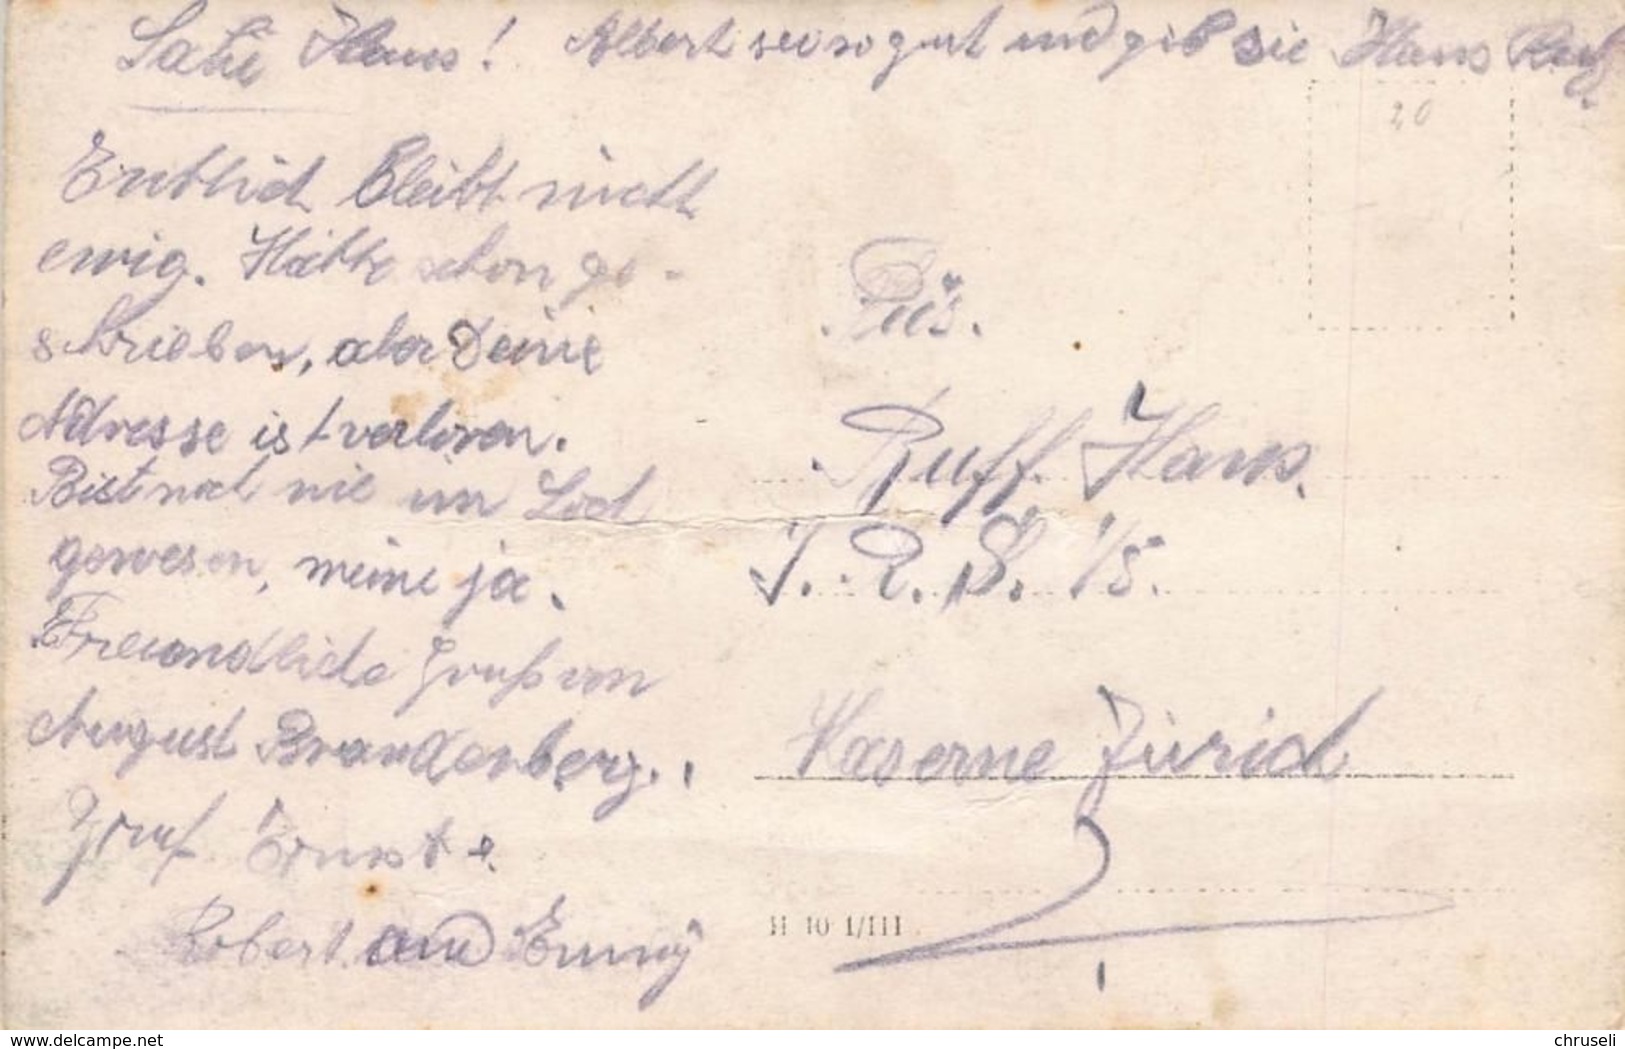 Salü Hans! Albert sei so gut und gib sie Hans Ruff.
20
Entlich bleibt nicht
ewig. Hätte schon ge-
schrieben, aber Deine
Adresse ist verloren.
Bist noch nie im Loch
gewesen, meine ja.
Freundliche Gruß von
August Brandenberg.
Gruß Ernst
Robert und Emmy
Füs.
Ruff Hans.
I. R. S. 1/5.
Kaserne Zürich
H 10 1/III
www.delcampe.net
chruseli